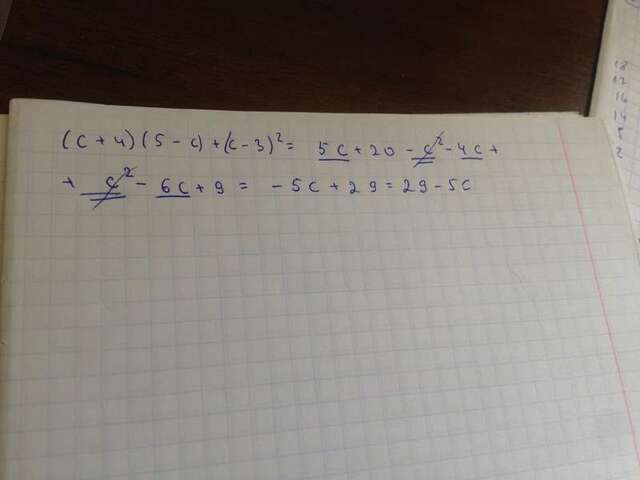 (c + 4)(5 - c) + (c - 3)² = 5c + 20 - c² - 4c +
+ c² - 6c + 9 = - 5c + 29 = 29 - 5c
18
17
16